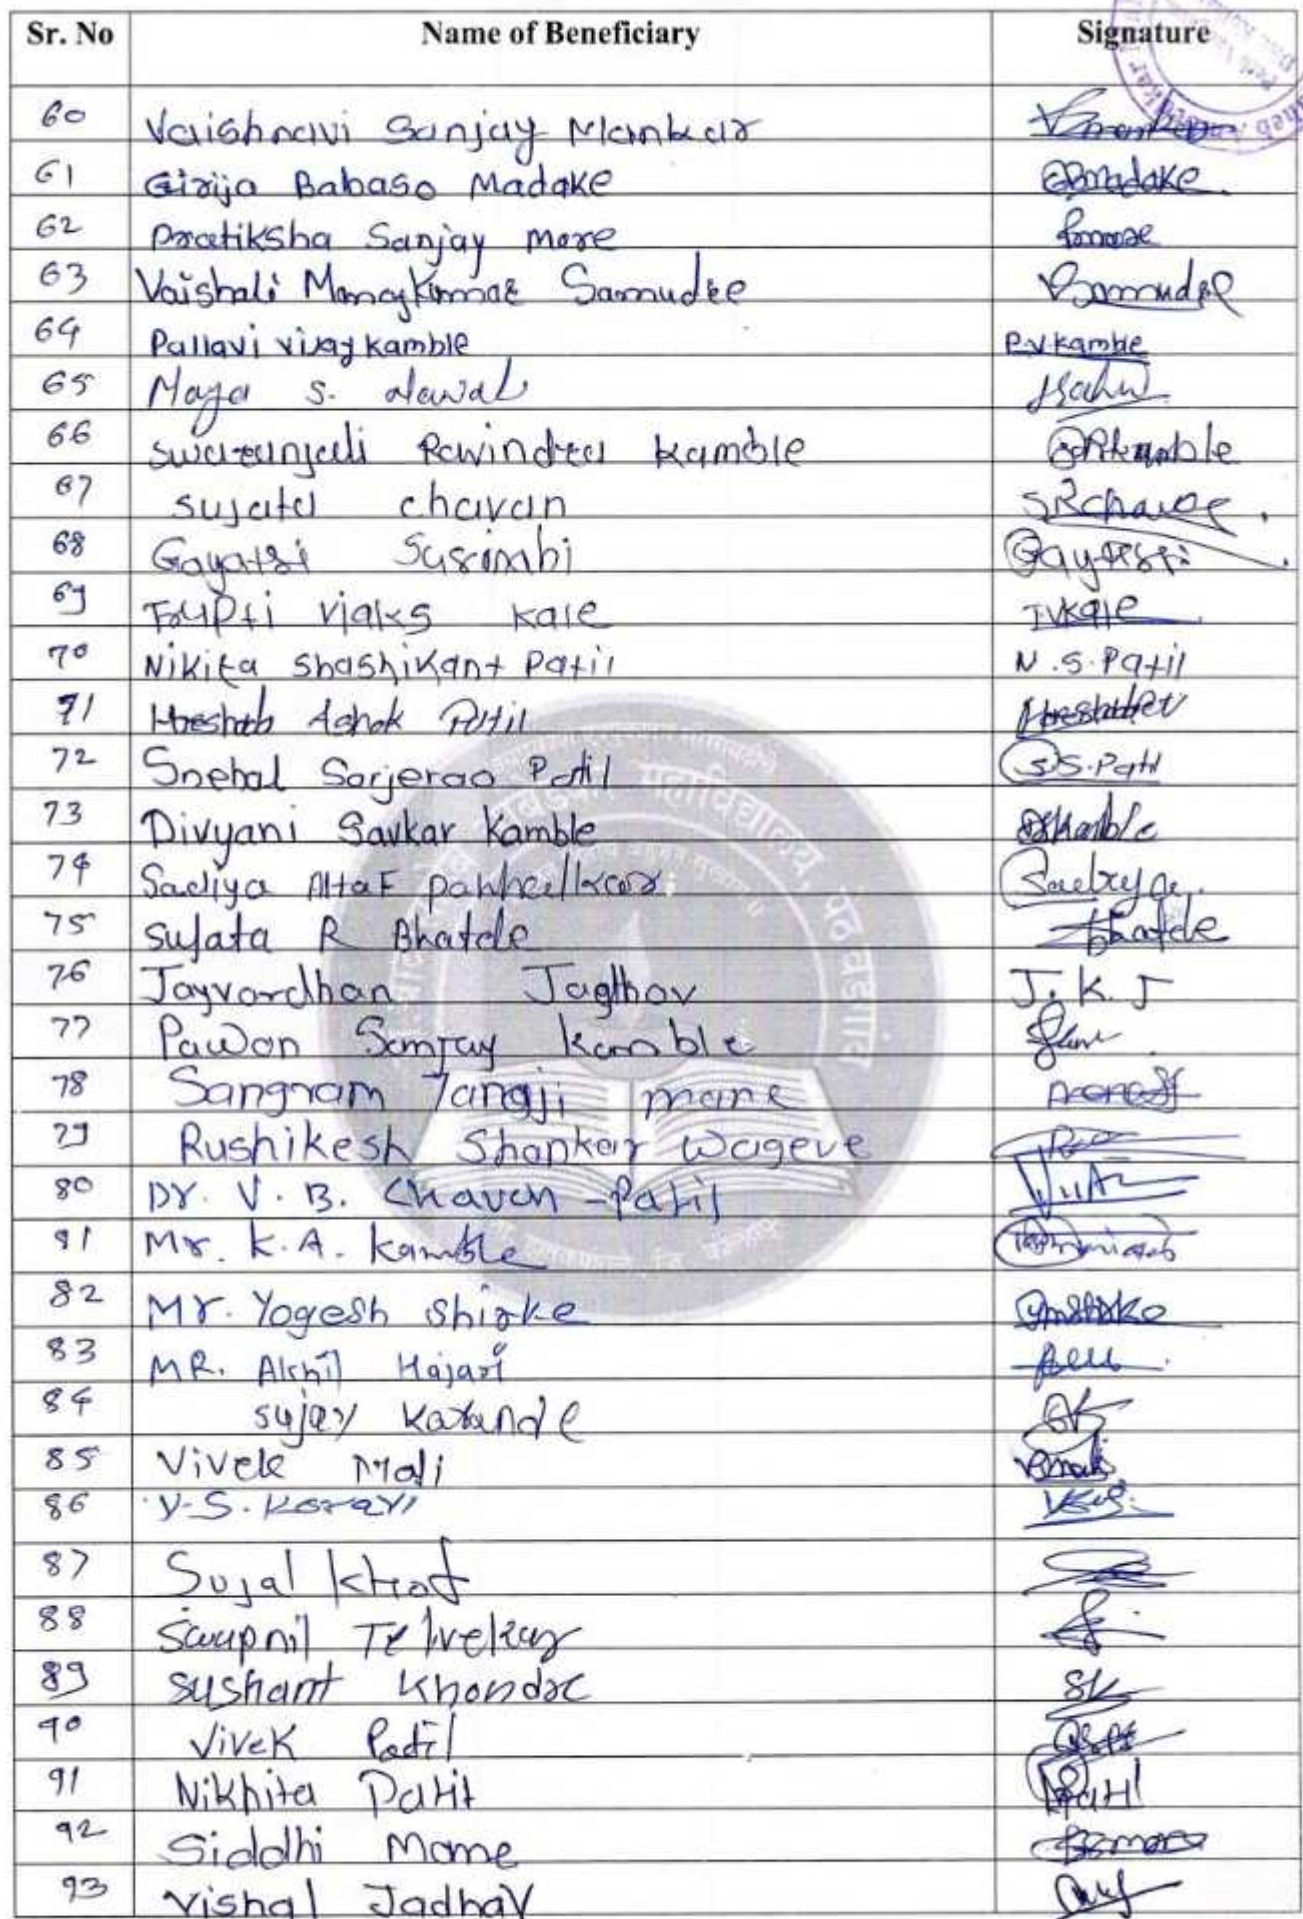 Sr. No Name of Beneficiary Signature
60 Vaishnavi Sanjay Mankar
61 Girija Babaso Madake GBMadake
62 Pratiksha Sanjay More Pmore
63 Vaishali Manojkumar Samudre VSamudre
64 Pallavi vijay kamble P.V kamble
65 Maya S.
66 swaranjali Ravindra kamble
67 sujata chavan SRchavan
68 Gayatri Gayatri
69 Trupti Vikas kale TVkale
70 Nikita Shashikant Patil N.S.Patil
71 Ashok Patil
72 Snehal Sarjerao Patil S.S.Patil
73 Divyani Savkar Kamble DSKamble
74 Sadiya Altaf Sadiya
75 sujata R Bhatde Bhatde
76 Jayvardhan J.K.J
77 Pawan Sanjay Kamble
78 Sangram Tanaji mane
79 Rushikesh Shankar Wageve
80 Dr. V. B. Chavan - Patil
81 Mr. K.A. Kamble
82 Mr. Yogesh Shirke
83 MR. Akhil Hajari
84 sujay Karande SK
85 Vivek Mali VMali
86 V.S.
87 Sujal Khot
88 Swapnil
89 sushant Khondre SK
90 Vivek Patil
91 Nikhita Patil NPatil
92 Siddhi Mane
93 Vishal Jadhav
महाविद्यालय, पेठवडगांव